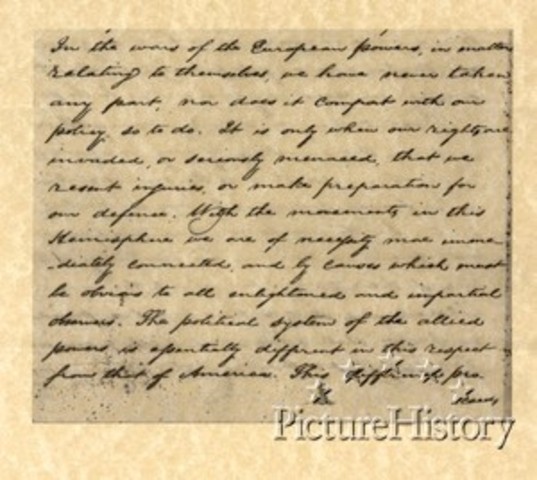 In the wars of the European powers, in matters
relating to themselves, we have never taken
any part, nor does it comport with our
policy, so to do. It is only when our rights are
invaded, or seriously menaced, that we
resent injuries, or make preparation for
our defense. With the movements in this
Hemisphere we are of necessity more imme-
-diately connected, and by causes which must
be obvious to all enlightened and impartial
observers. The political system of the allied
powers, is essentially different in this respect
from that of America. This difference pro
PictureHistory